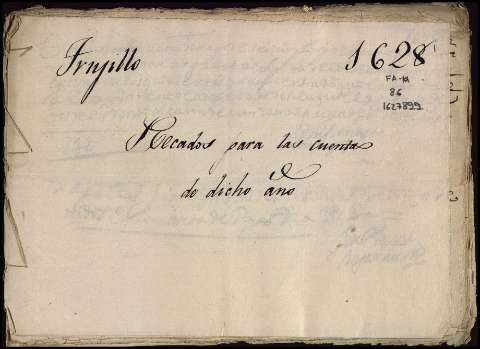 Trujillo 1628
FA-M
86
1627899
Recados para las cuentas
de dicho año